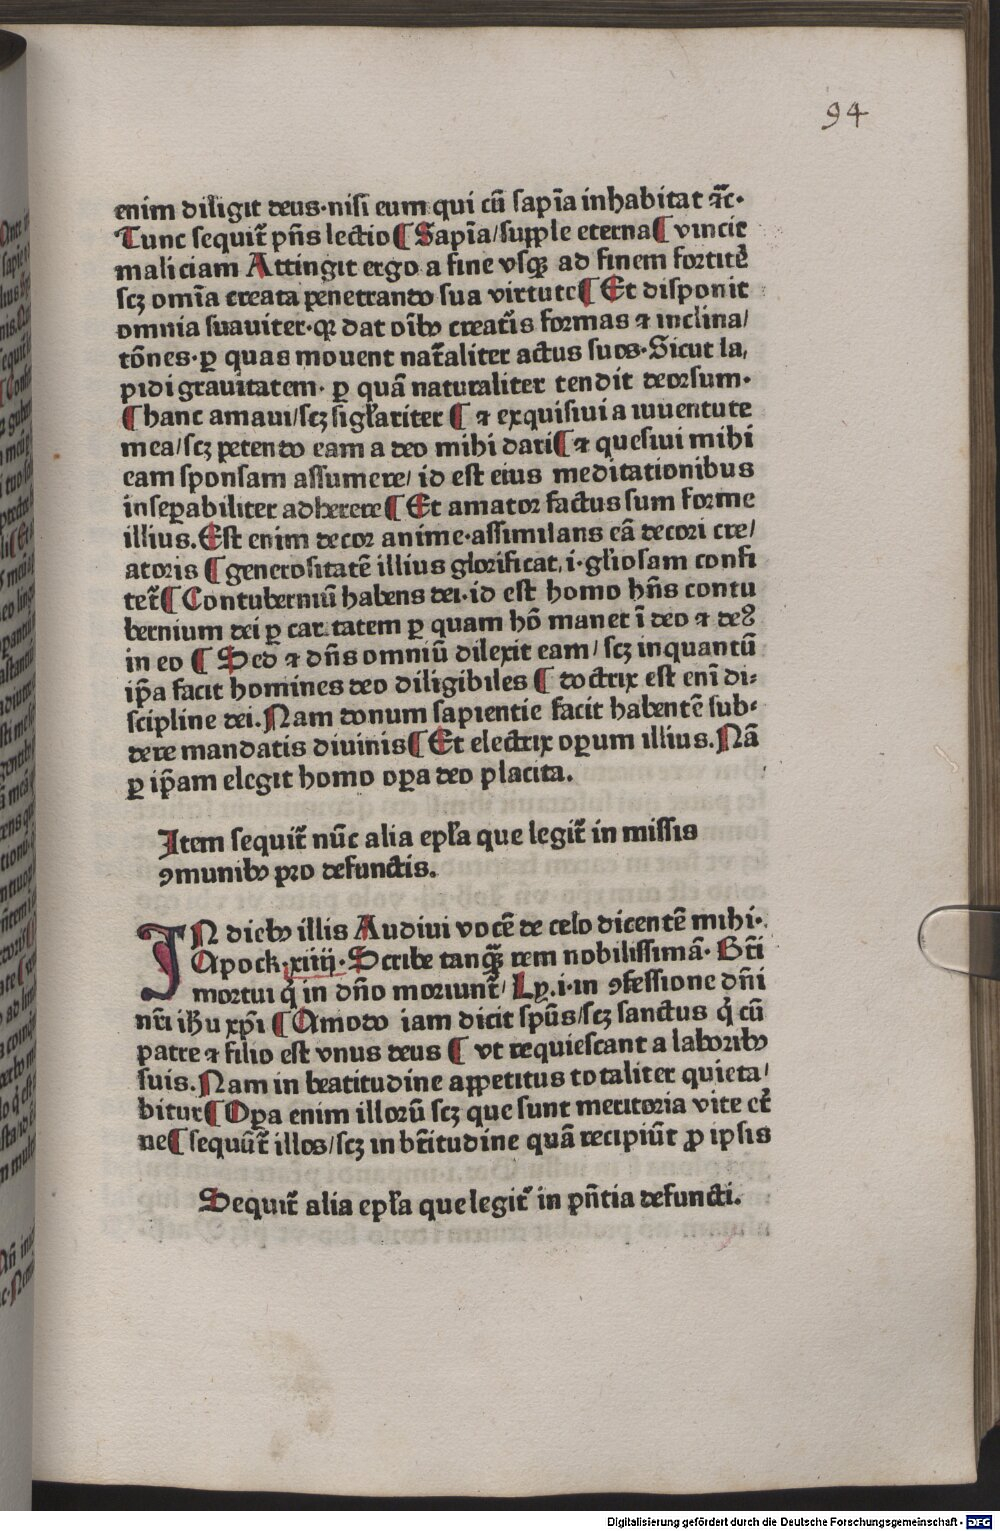 94
enim diligit deus·nisi eum qui cū sapīa inhabitat ⁊c̄·
Tunc sequit̄ pn̄s lectio¶ Sapīa/supple eterna¶ vincit
maliciam Attingit ergo a fine vsqꝫ ad finem fortit̄
scꝫ om̄ia creata penetrando sua virtute¶ Et disponit
omnia suauiter·qꝛ dat oīb9 creat̄is formas ⁊ inclina/
tōnes·ꝑ quas mouent nat̄aliter actus suos·Sicut la,
pidi grauitatem· ꝑ quā naturaliter tendit deorsum·
¶ hanc amaui/scꝫ siglariter ¶ ⁊ exquisiui a iuuentute
mea/scꝫ petendo eam a deo mihi dari¶ ⁊ quesiui mihi
eam sponsam assumere/ id est eius meditationibus
inseꝑabiliter adherere¶ Et amator factus sum forme
illius.Est enim decor anime·assimilans eā decori cre/
atoris ¶ generositatē illius glorificat, i·gliosam confi
tet̄¶ Contuberniū habens dei·id est homo hn̄s contu
bernium dei ꝑ car tatem ꝑ quam hō manet ī deo ⁊ de9
in eo ¶ Sed ⁊ dn̄s omniū dilexit eam/ scꝫ inquantū
ip̄a facit homines deo diligibiles ¶ doctrix est enī di⸗
scipline dei.Nam donum sapientie facit habentē sub⸗
dere mandatis diuinis¶ Et electrix oꝑum illius.Nā
ꝑ ip̄am elegit homo oꝑa deo placita.
Item sequit̄ nūc alia epła que legit̄ in missis
ꝯmunib9 pro defunctis.
IN dieb9 illis Audiui vocē de celo dicentē mihi·
Apock·xiiij·Scribe tanqꝫ rem nobilissimā· Bt̄i
mortui q̇ in dn̄o moriunt̄/ Lꝑ.i·in ꝯfessione dn̄i
nr̄i ihu xp̄i ¶ Amodo iam dicit sp̄us/scꝫ sanctus q̇ cū
patre ⁊ filio est vnus deus ¶ vt requiescant a laborib9
suis.Nam in beatitudine appetitus totaliter quieta/
bitur¶ Oꝑa enim illorū scꝫ que sunt meritoria vite et̄
ne¶ sequūt̄ illos/scꝫ in bt̄itudine quā recipiūt ꝓ ipsis
Sequit̄ alia epła que legit̄ in pn̄tia defuncti.
Digitalisierung gefördert durch die Deutsche Forschungsgemeinschaft - DFG